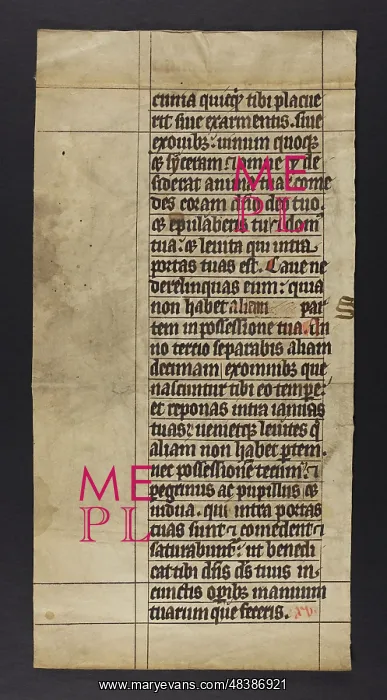 cunia quicq̄ tibi placue
rit siue ex armentis. siue
ex ouibꝫ. uinum quoqꝫ
⁊ syceram ⁊ omne qd̄ de
siderat anima tua: come
des coram dn̄o deo tuo.
⁊ epulaberis tu ⁊ dom̄
tua: ⁊ leuita qui intra
portas tuas est. Caue ne
derelinquas eum: quia
non habet aliam par
tem in possessione tua. An
no tercio separabis aliam
decimam ex omnibꝫ que
nascuntur tibi eo tempe:
et repones intra ianuas
tuas: uenietqꝫ leuites q̄
aliam non habet ꝑtem.
nec possessionem tecum: ⁊
ꝑegrinus ac pupillus ⁊
uidua. qui intra portas
tuas sunt ⁊ comedent ⁊
saturabunt᷑: ut benedi
cat tibi dn̄s ds̄ tuus in
cunctis oꝑibꝫ manuum
tuarum que feceris. xv.
S
ME
PL
ME
PL
www.maryevans.com / 48386921